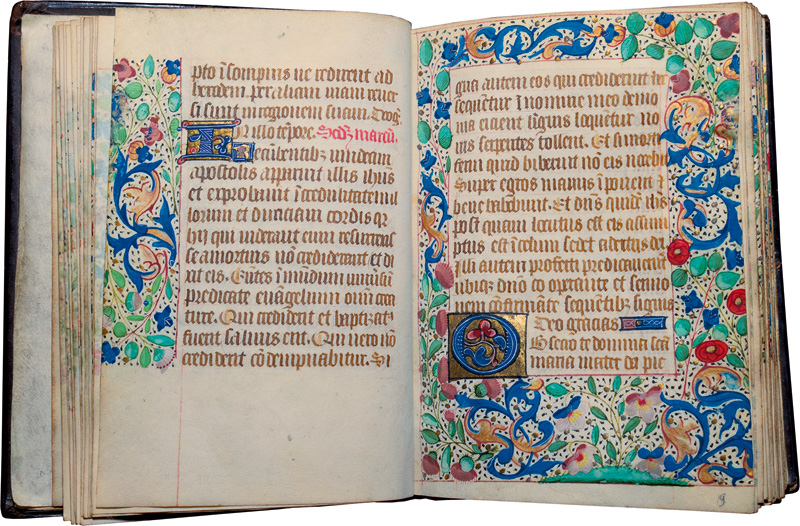 pto i sompnis ne redirent ad
herodem per aliam viam reve
si sunt in regionem suam. Deo g̃
In illo tẽpore. Secdȝ marcũ.
Recũbentibȝ undecim
apostolis apparuit illis ihus
et exprobavit ĩcredulitatẽ il
lorum et duriciam cordis qr
hii qui viderant eum resurrexis
se a mortuis nõ crediderant et di
xit eis. Eũtes ĩ mundum univsũ
predicate evãgelium omĩ crea
ture. Qui crediderit et baptizat9
fuerit salvus erit. Qui vero non
crediderit cõdempnabitur. Si
gna autem eos qui crediderint hec
sequẽtur ĩ nomine meo demo
nia eicient lĩguis loquẽtur no
vis serpentes tollent. Et si morti
ferũ quid biberint nõ eis nocebit
Super egros manus ĩponent et
bene habebunt. Et dñs quidẽ ihs
post quam locutus est eis assum
ptus est ĩ celum sedet a dextris dei
Illi autem profecti predicaverũt
ubiqȝ dño co operante et sermo
nem cõfirmãte sequẽtibȝ signis
Deo gracias
Obsecro te domina scã
maria mater dei pie